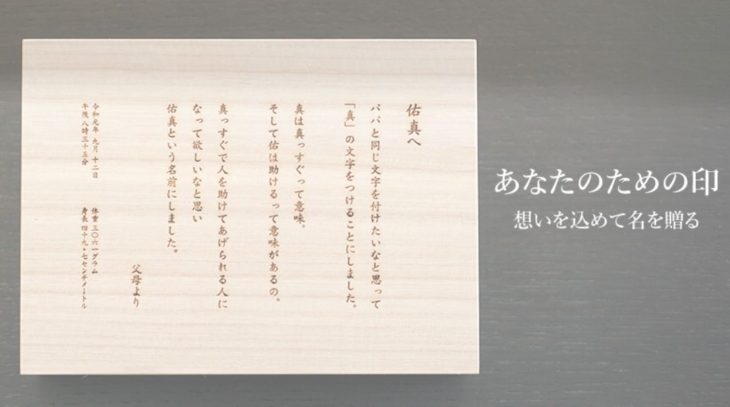 佑真へ
パパと同じ文字を付けたいなと思って
「真」の文字をつけることにしました。
真は真っすぐって意味。
そして佑は助けるって意味があるの。
真っすぐで人を助けてあげられる人に
なって欲しいなと思い
佑真という名前にしました。
父母より
令和元年 九月 十二日
午後八時三十五分
体重 三〇六一グラム
身長 四十九・七センチメートル
あなたのための印
想いを込めて名を贈る